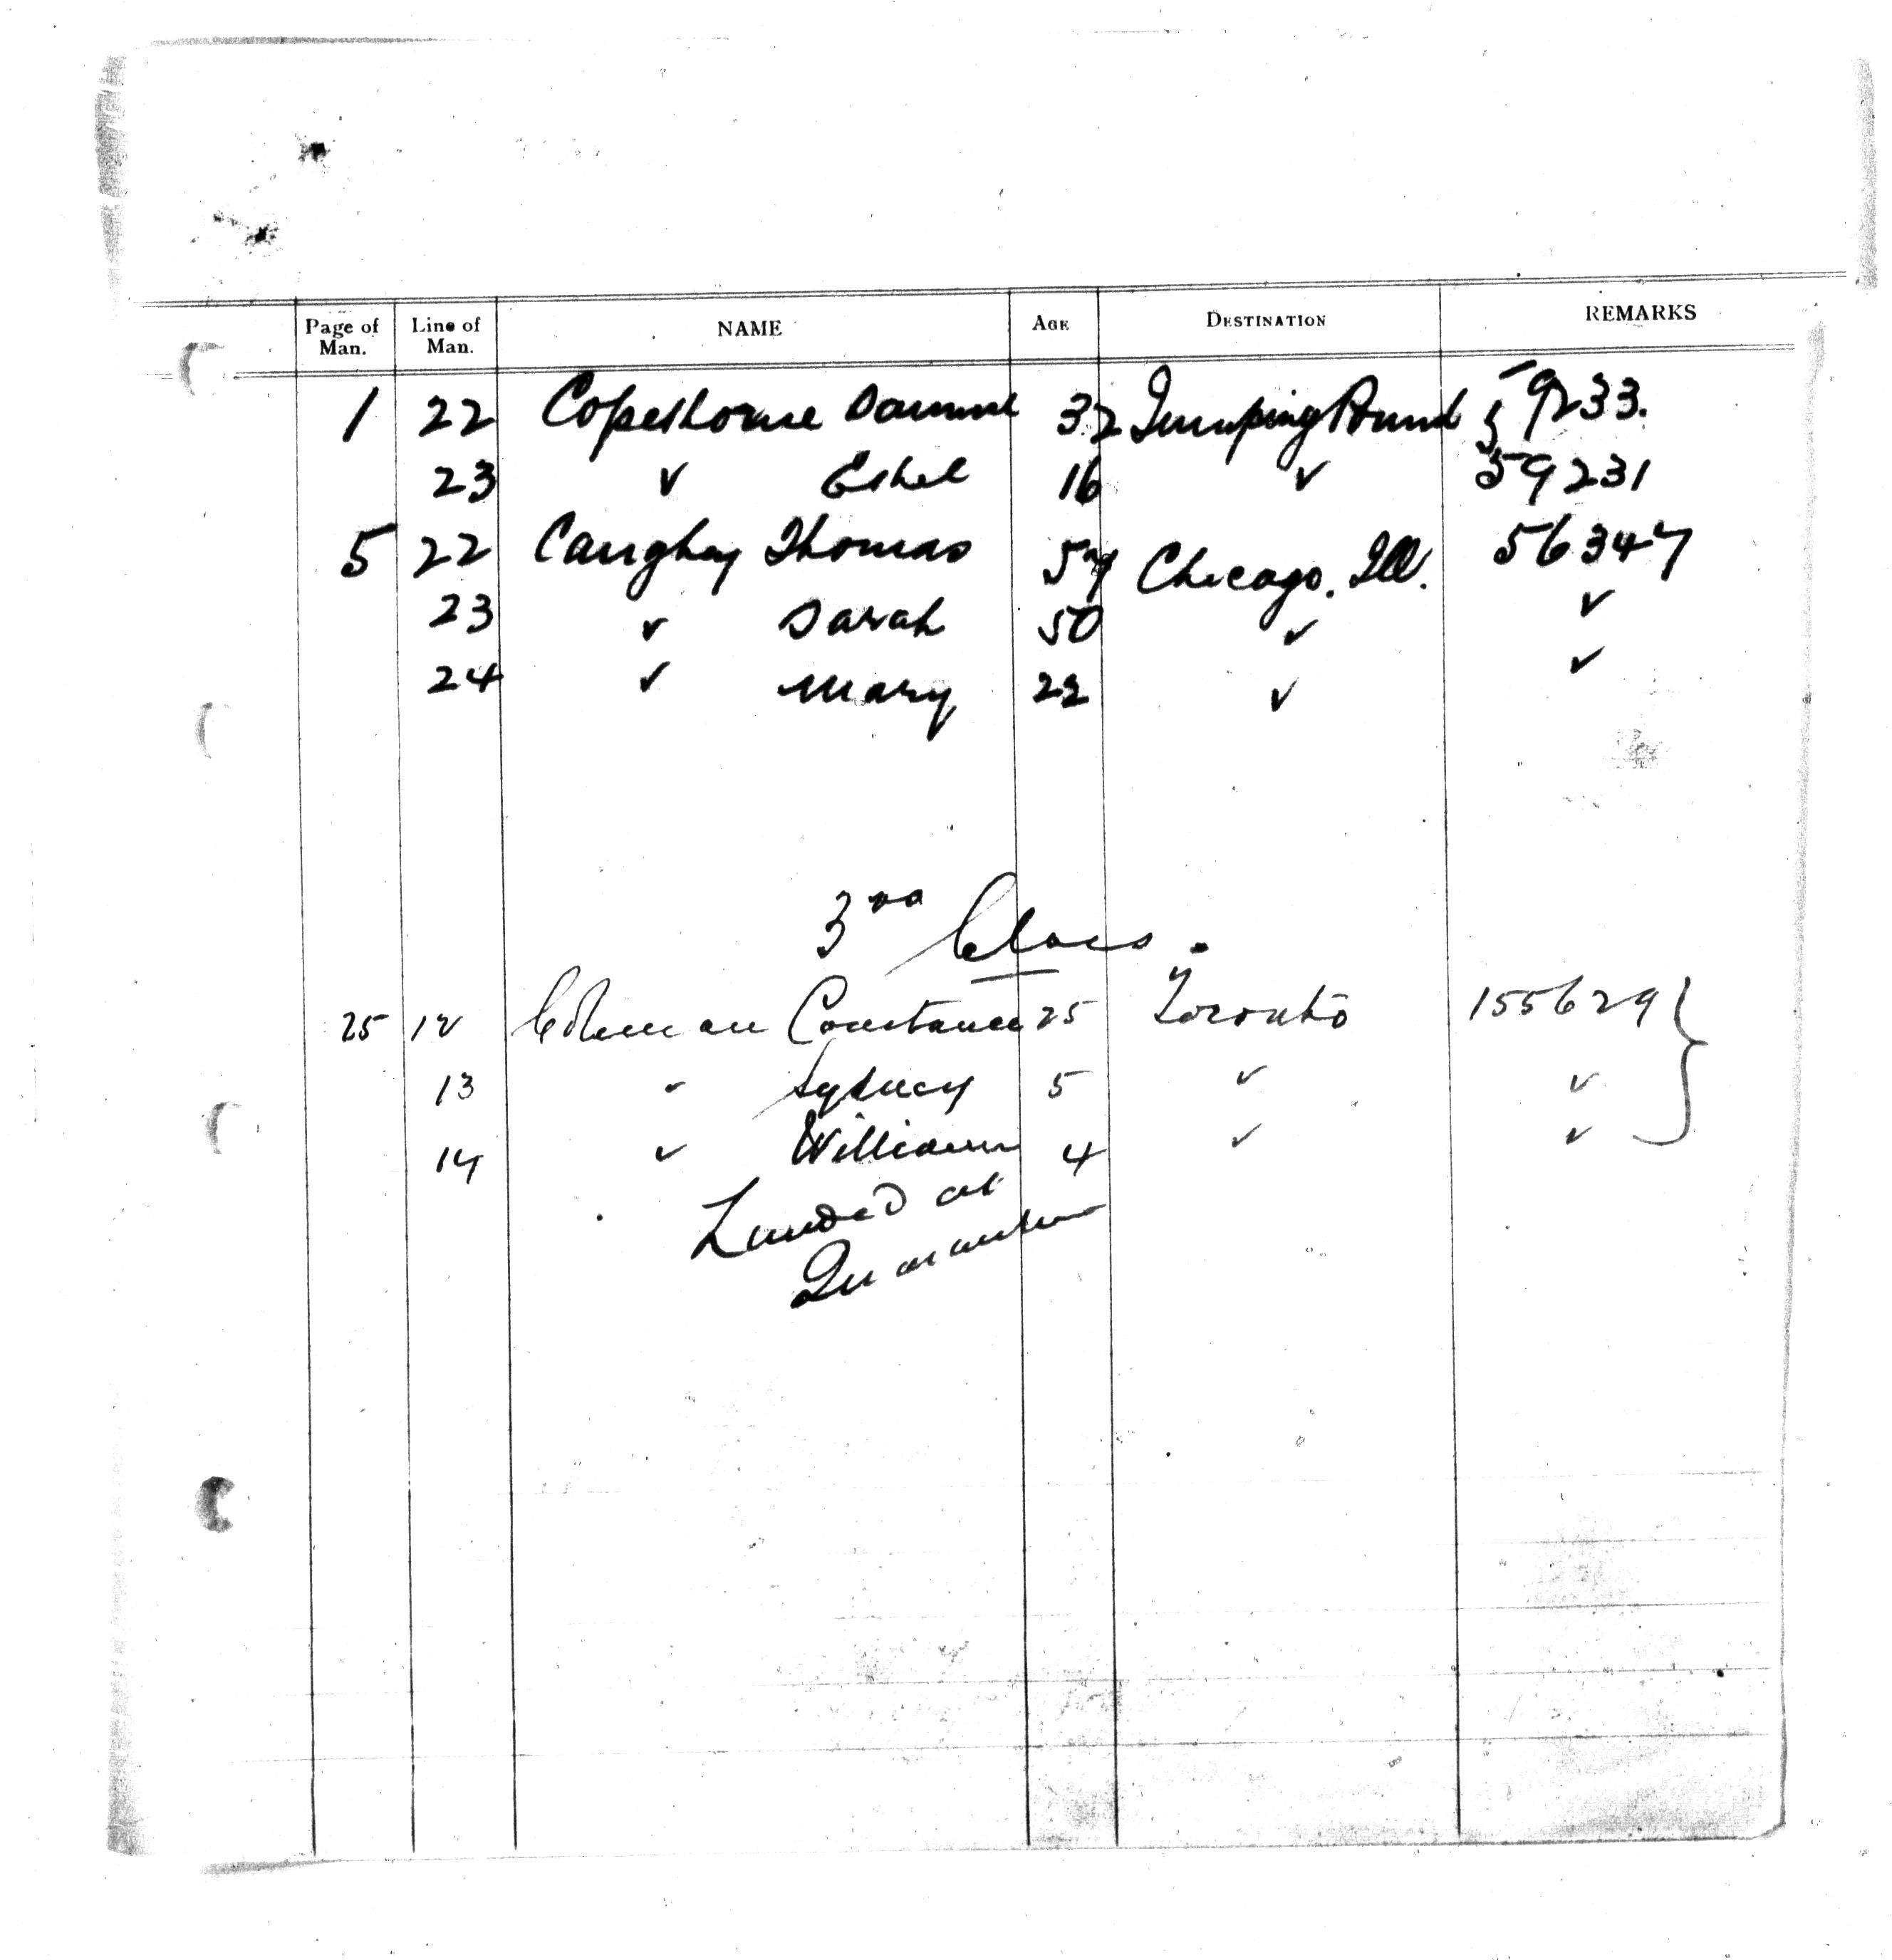 Page of Man. Line of Man. NAME AGE DESTINATION REMARKS
1 22 Copithorne Samuel 32 Jumping Pound 59233.
23 " Ethel 16 " 59231
5 22 Caughey Thomas Chicago. Ill. 56347
23 " Sarah 50 " "
24 " Mary 22 " "
3rd Class.
25 12 Coleman Constance 25 Toronto 155629
13 " Sydney 5 " "
14 " William 4 " "
Landed at
Quarantine